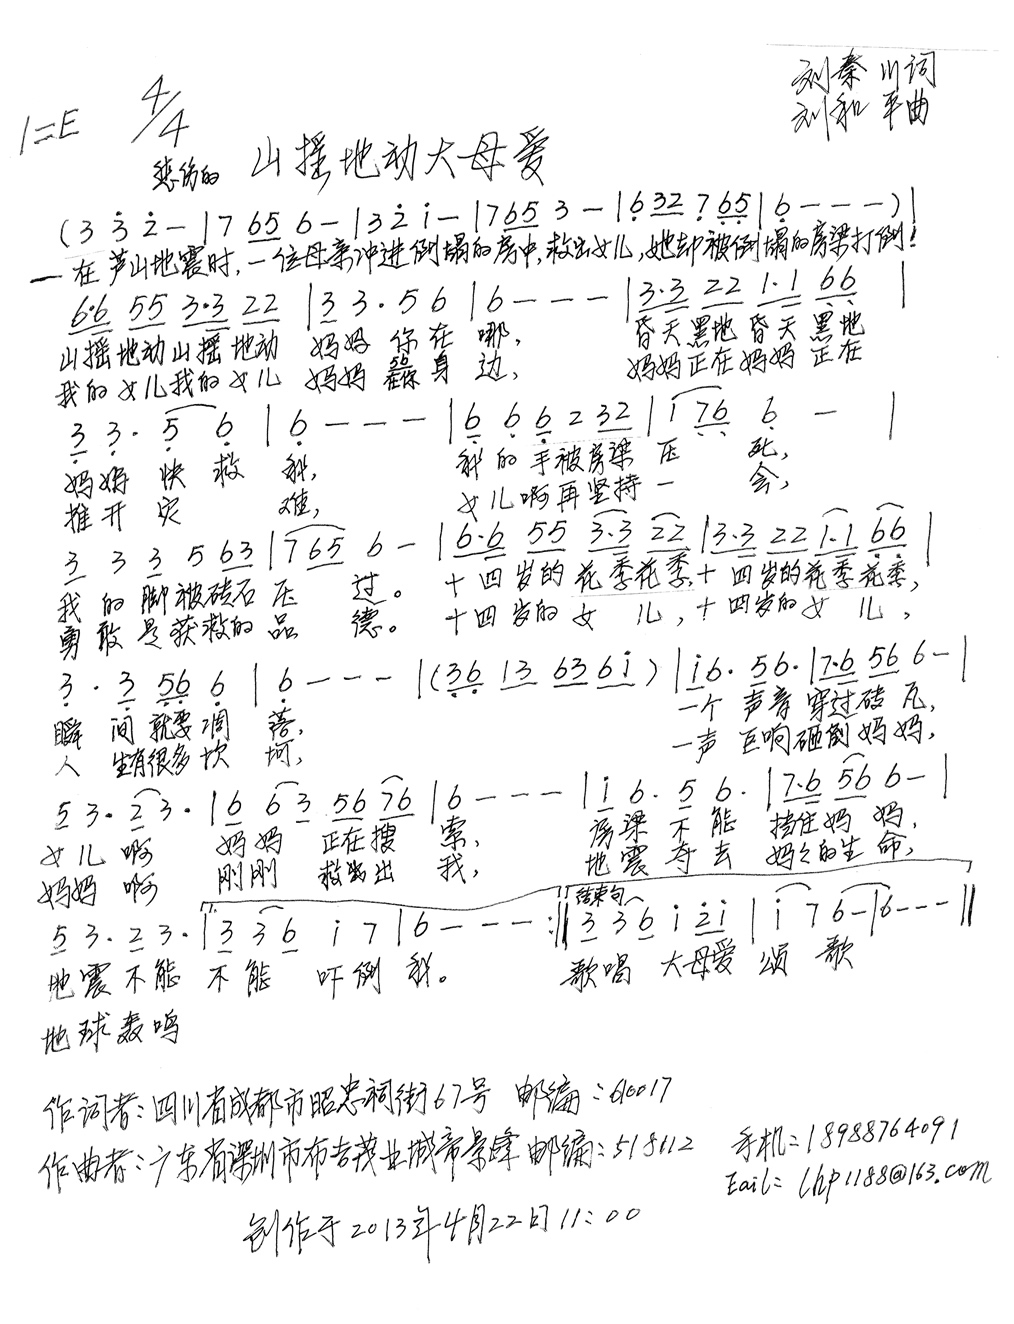 刘秦川词
刘和平曲
1=E 4/4
悲伤的 山摇地动大母爱
(3 3̇ 2̇ - | 7 65 6 - | 3 2̇ i - | 7 65 3 - | 6 32 7 65 | 6 - - - ) |
一在芦山地震时,一位母亲冲进倒塌的房中,救出女儿,她却被倒塌的房梁打倒!
6·6 55 3·3 22 | 3 3·5 6 | 6 - - - | 3·3 22 1·1 66 |
山摇地动山摇地动 妈妈你在哪, 昏天黑地昏天黑地
我的女儿我的女儿 妈妈在你身边, 妈妈正在妈妈正在
3 3· 5 6 | 6 - - - | 6 6 6 2 32 | i 76 6 - |
妈妈快救我, 我的手被房梁压死,
推开灾难, 女儿啊再坚持一会,
3 3 3 5 63 | 7 65 6 - | 6·6 55 3·3 22 | 3·3 22 1·1 66 |
我的脚被砖石压过。十四岁的花季花季,十四岁的花季花季,
勇敢是获救的品德。十四岁的女儿,十四岁的女儿,
3· 3 56 6 | 6 - - - | (36 13 63 6i) | i6· 56· | 7·6 56 6 - |
瞬间就要凋落, 一个声音穿过砖瓦,
人生有很多坎坷, 一声巨响砸倒妈妈,
5 3· 2 3· | 6 6 3 56 76 | 6 - - - | i 6· 5 6· | 7·6 56 6 - |
女儿啊 妈妈正在搜索, 房梁不能挡住妈妈,
妈妈啊 刚刚救出我, 地震夺去妈々的生命,
1. 结束句
5 3· 2 3· | 3 3 6 i 7 | 6 - - - :‖ 3 3 6 i 2̇i | i 7 6 - | 6 - - - ‖
地震不能不能吓倒我。 歌唱大母爱颂歌
地球轰鸣
作词者:四川省成都市昭忠祠街67号 邮编:610017
作曲者:广东省深圳市布吉茂业城帝景峰 邮编:518112 手机:18988764091
Eail: lhp1188@163.com
创作于2013年4月22日11:00